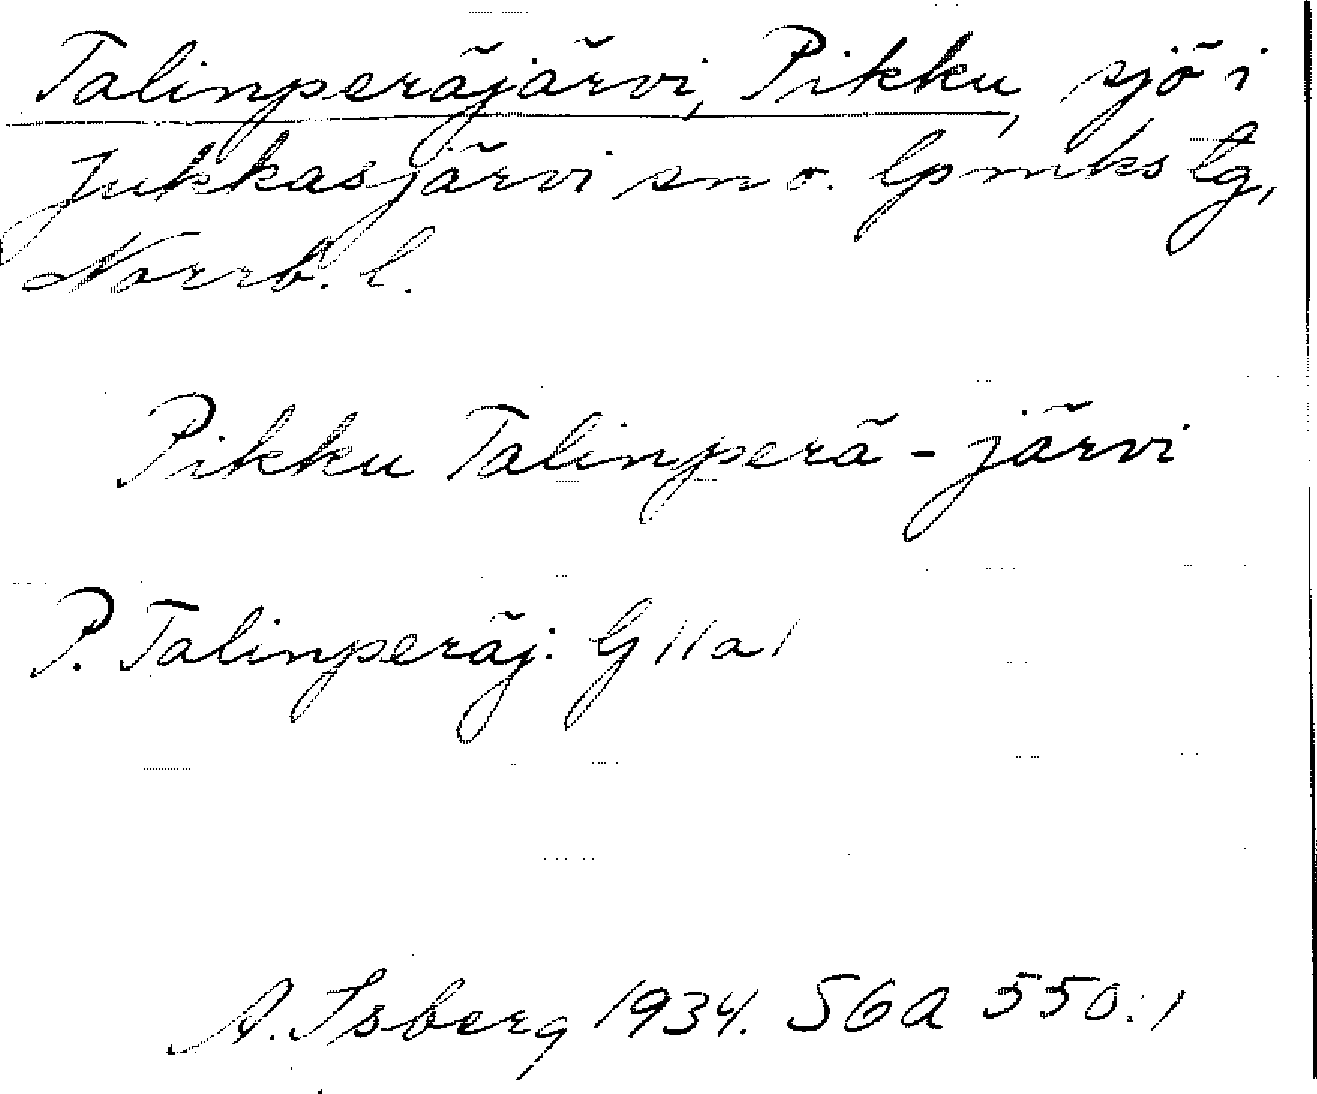 Talinperäjärvi, Pikku, sjö i
Jukkasjärvi sn o. lpmks tg,
Norrb. l.
Pikku Talinperä-järvi
P. Talinperäj: G 11 a 1
A. Isberg 1934. SGA 550:1